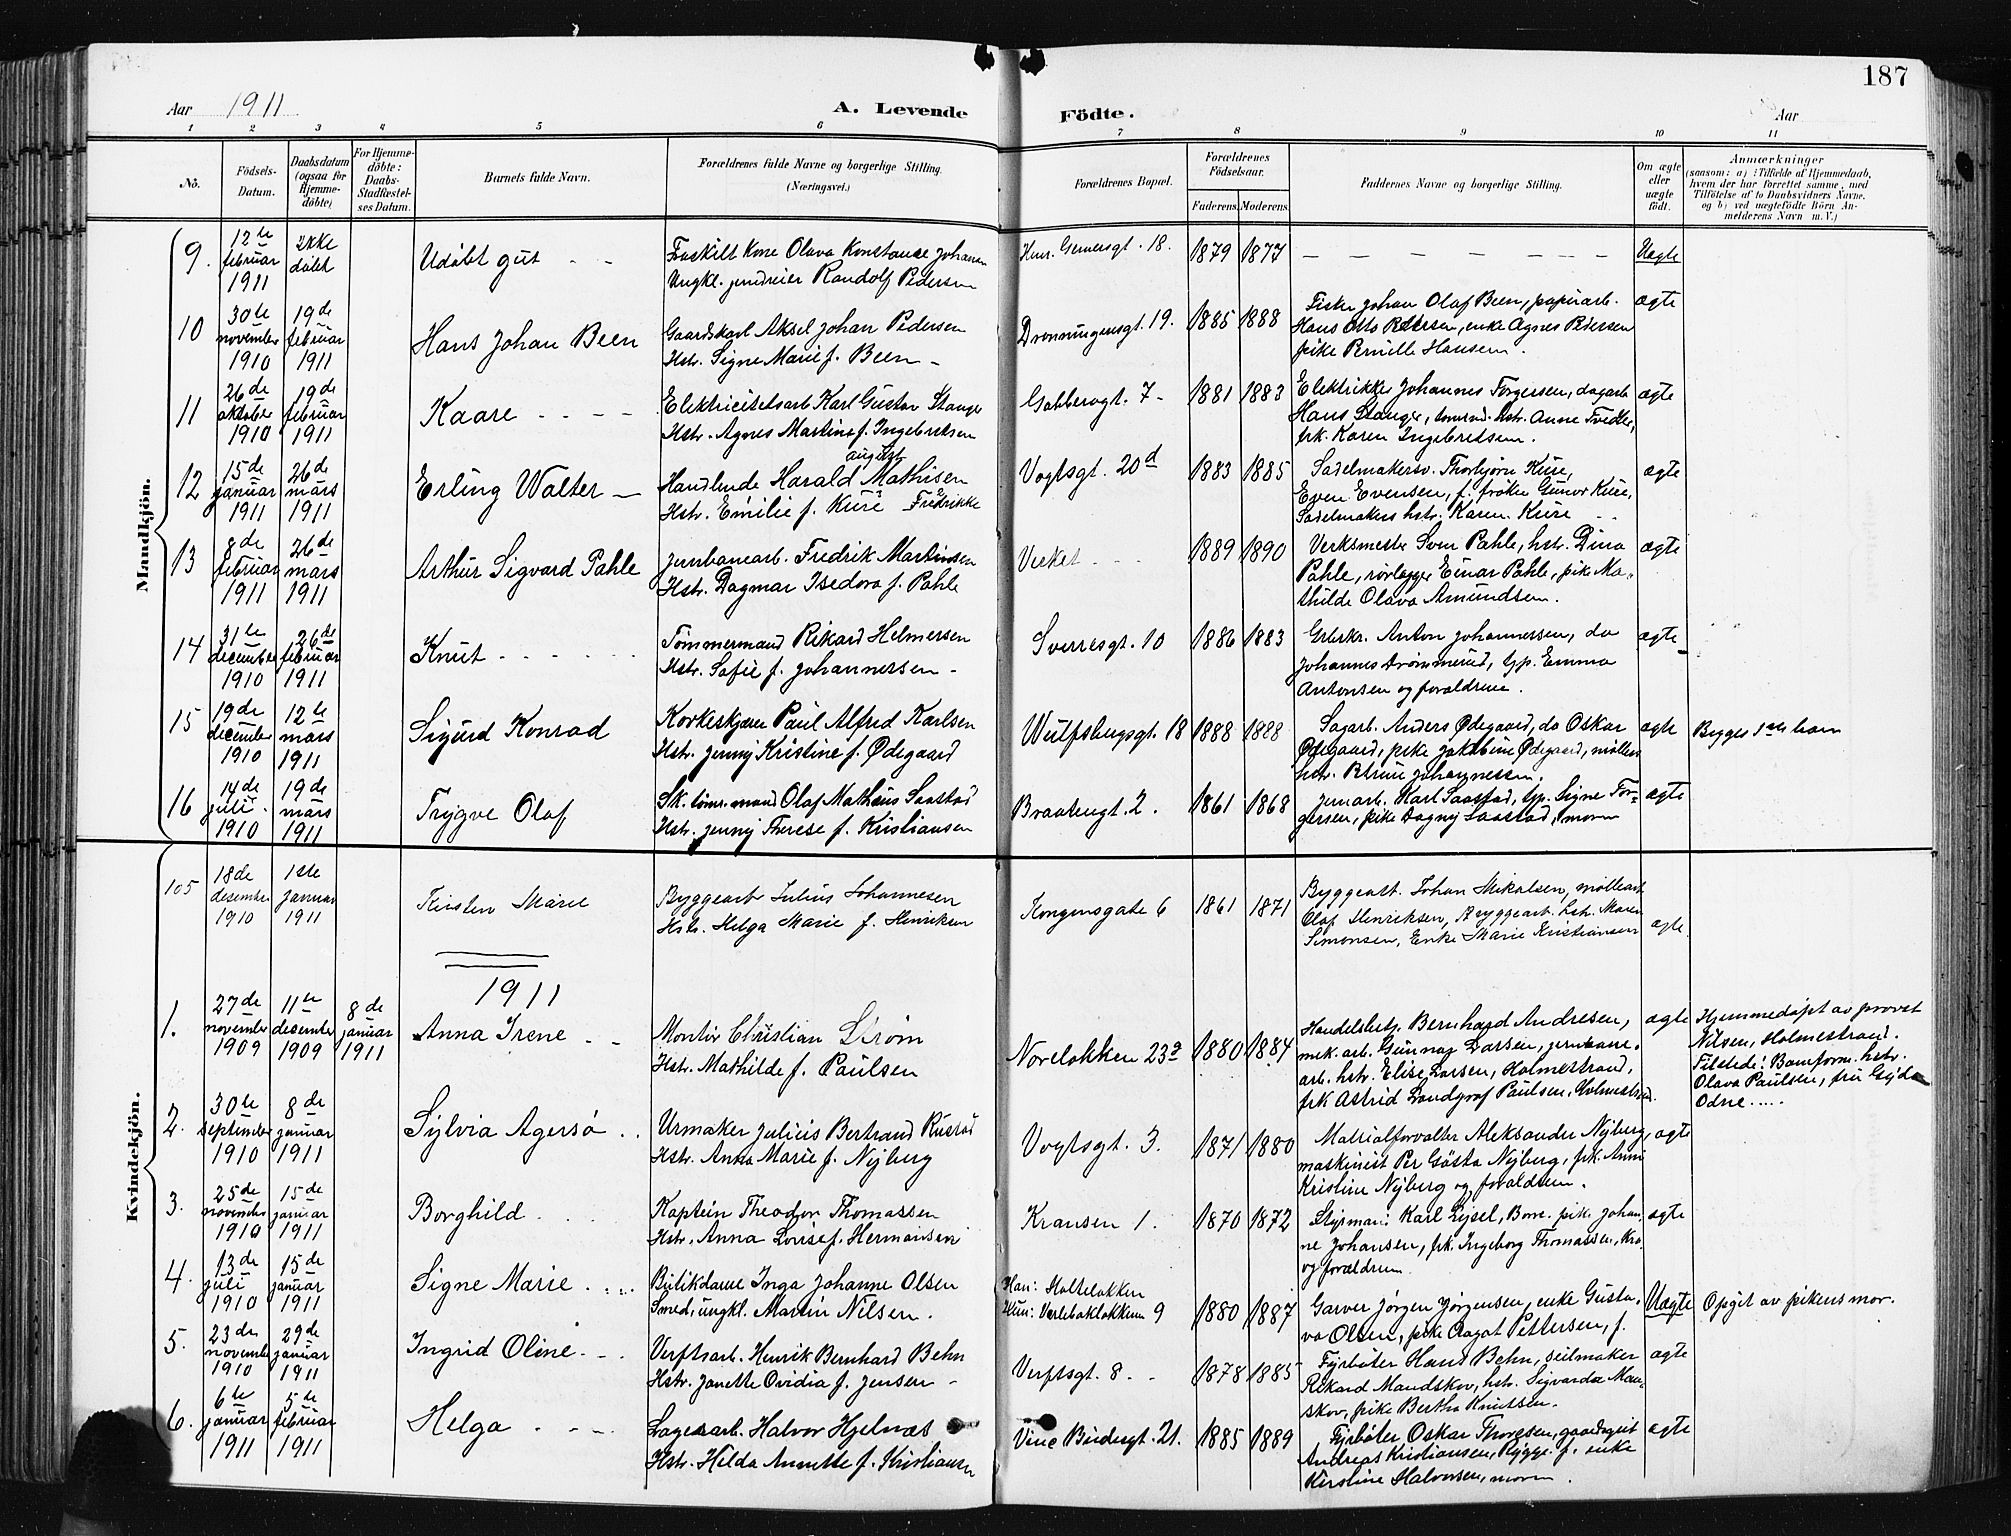 187
Aar 1911 A. Levende Födte. Aar
1 2 3 4 5 6 7 8 9 10 11
No. Födsels-Datum. Daabsdatum (ogsaa for Hjemme-döbte) For Hjemme-döbte: Daabs-Stadfæstel-ses Datum. Barnets fulde Navn. Forældrenes fulde Navne og borgerlige Stilling. (Næringsvei.) Forældrenes Bopæl. Forældrenes Födselsaar. Faderens. Moderens. Faddernes Navne og borgerlige Stilling. Om ægte eller uægte födt. Anmærkninger
(saasom: a) i Tilfælde af Hjemmedaab, hvem der har forrettet samme, med Tilföielse af to Daabsvidners Navne, og b) ved uægtefödte Börn An-melderens Navn m. V.)
Mandkjön.
9. 12te februar 1911 Ikke döbt Udöbt gut - - Fraskilt Kone Olava Konstance Johansen
Ungkl. jernbaneier Randolf Pedersen
Henr. Gernersgt. 18. 1879 1877 - - - - - - - - Uægte
10 30te november 1910 19de februar 1911 Hans Johan Been Gaardskarl Aksel Johan Pedersen
Hstr. Signe Marie f. Been -
Dronningensgt. 19. 1885 1888 Fisker Johan Olaf Been, papirarb.
Hans Otto Petersen, enke Agnes Petersen
pike Pernille Hansen. ægte
11 26de oktober 1910 19de februar 1911 Kaare - - - - Elektricitetsarb. Karl Gustav Stanger
Hstr. Agnes Martine f. Ingebretsen
Gabbersgt. 7 - 1881 1883 Elektriker Johannes Torgersen, dagarb.
Hans Stanger, tømmerm. hstr. Anne Tvedter,
frk. Karen Ingebretsen. ægte
12 15de januar 1911 26de mars 1911 Erling Walter - Handlende Harald august Mathisen
Hstr. Emilie f. Kure Fredrikke
Vogtsgt. 20d 1883 1885 Sadelmakersv. Thorbjørn Kure,
Even Evensen, f. frøken Gunvor Kure,
Sadelmakers hstr. Karen Kure ægte
13 8de februar 1911 26de mars 1911 Arthur Sigvard Pahle Jernbanearb. Fredrik Martinsen
Hstr. Dagmar Isedora f. Pahle
Verket - - - 1889 1890 Verksmester Sven Pahle, hstr. Dina
Pahle, rørlægger Einar Pahle, pik. Ma-
thilde Olava Amundsen. ægte
14 31te december 1910 26de februar 1911 Knut - - - - - - Tømmermand Rikard Helmersen
Hstr. Sofie f. Johannersen -
Sverresgt. 10 1886 1883 Anton Johannersen, do
Johannes Drømmerud, tjp. Emma
Antonsen og forældrene. ægte
15 19de december 1910 12te mars 1911 Sigurd Konrad Korkeskjærer Paul Alfred Karlsen
Hstr. Jenny Kristine f. Ødegaard
Wulfsbergsgt. 18 1888 1888 Sagarb. Anders Ødegaard, do Oskar
Ødegaard, pike Jakobine Ødegaard, møllers
hstr. Petrine Johannessen. ægte Begges 1ste barn
16 14de juli 1910 19de mars 1911 Trygve Olaf Sk. tømr. mand Olaf Mathæus Saastad
Hstr. Jenny Therese f. Kristiansen
Braatengt. 2. 1861 1868 Jernarb. Karl Saastad, tjp. Signe Tor-
gersen, pike Dagny Saastad, moren ægte
Kvindekjön.
105 18de desember 1910 1ste januar 1911 Kirsten Marie Byggearb Julius Johannesen
Hstr. Helga Marie f. Henriksen
Kongensgate 6 1861 1871 Byggearb. Johan Mikalsen, møllearb
Olaf Henriksen, Byggearb. hstr. Maren
Simonsen, Enke Marie Kristiansen ægte.
1911
1. 27de november 1909 11te desember 1909 8de januar 1911 Anna Irene - - Montør Christian Strøm
Hstr. Mathilde f. Paulsen
Noreløkken 23a 1880 1884 Handelsbetj. Bernhard Andresen,
mek. arb. Gunnar Larsen, jernbane-
arb. hstr. Elise Larsen, Holmestrand,
frk Astrid Landgraf Paulsen, Holmestrand. ægte Hjemmedøpt av provst
Nilsen, Holmestrand.
Tilstede: Banform. hstr.
Olava Paulsen, fru Gyda
Odne .....
2. 30te september 1910 8de januar 1911 Sylvia Agersø . . Urmaker Julius Bertrand Rustad
Hstr. Anna Marie f. Nyberg
Vogtsgt. 3. 1871 1880 Matrialforvalter Aleksander Nyberg,
maskinist Per Gösta Nyberg, frk. Anni
Kristine Nyberg og forældrene. ægte
3. 25de november 1910 15de januar 1911 Borghild . . . Kaptein Theodor Thomassen
Hstr. Anna Lovise f. Hermansen
Kransen 1. 1870 1872 Styrmann Karl Lysel, Borre. pike Johan-
ne Johansen, frk. Ingeborg Thomassen,
og forældrene ægte
4. 13de juli 1910 15de januar 1911 Signe Marie . . . . Butikdame Inga Johanne Olsen
Smed, ungkl. Martin Nilsen.
Han: Holteløkken
Hun: Verlebakløkken 9 1880 1887 Garver Jørgen Jørgensen, enke Gusta-
va Olsen, pike Aagot Pettersen, f. Uægte Opgit av pikens mor.
5. 23de november 1910 29de januar 1911 Ingrid Oline . - - Verftsarb. Henrik Bernhard Behn
Hstr. Janette Ovidia f. Jensen -
Verftsgt. 8. - 1878 1885 Fyrbøter Hans Behn, seilmaker
Rikard Mandskov, hstr. Sigvarda Man-
skov, pike Bertha Knutsen. ægte
6. 6te januar 1911 5te februar 1911 Helga . - - . Lagerarb. Halvor Hjelnæs
Hstr. Hilda Annette f. Kristiansen
Vine Bredersgt. 21. 1885 1889 Fyrbøter Oskar Thoresen, gaardsgut
Andreas Kristiansen, Rygge. f. enke
Kirstine Halvorsen, moren. ægte